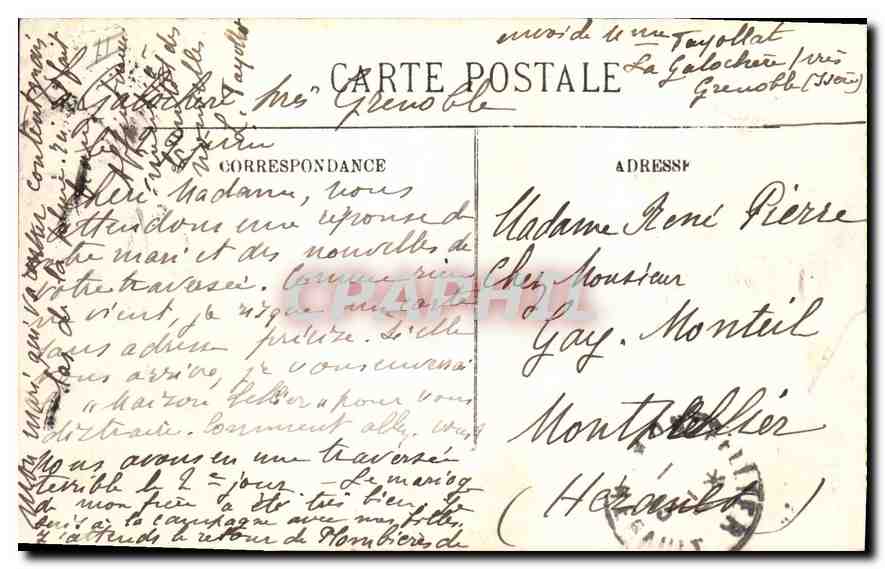 envoi de Mme Tayollat
La Galochère, près
Grenoble (Isère)
CARTE POSTALE
La Galochère près Grenoble
CORRESPONDANCE
Juin
Chère Madame, nous
attendons une réponse de
votre mari et des nouvelles de
votre traversée. Comme rien
ne vient, je risque une carte
sans adresse précise. Si elle
vous arrive, je vous enverrai
"Maison" pour vous
distraire. Comment allez-vous
Nous avons eu une traversée
terrible le 2e jour. - Le mariage
de mon frère a été très bien. Je
suis à la campagne avec mes belles
J'attends le retour de Plombières de
mon mari qui va rentrer content mais
las de la
ADRESSE
Madame René Pierre
Chez Monsieur
Gay. Monteil
Montpellier
(Hérault)
CPARHIL